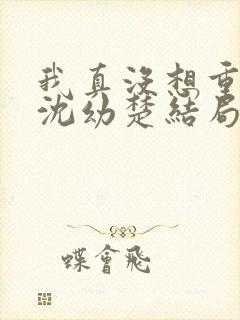 我真沒想重
沈幼楚結局
蝶會飛